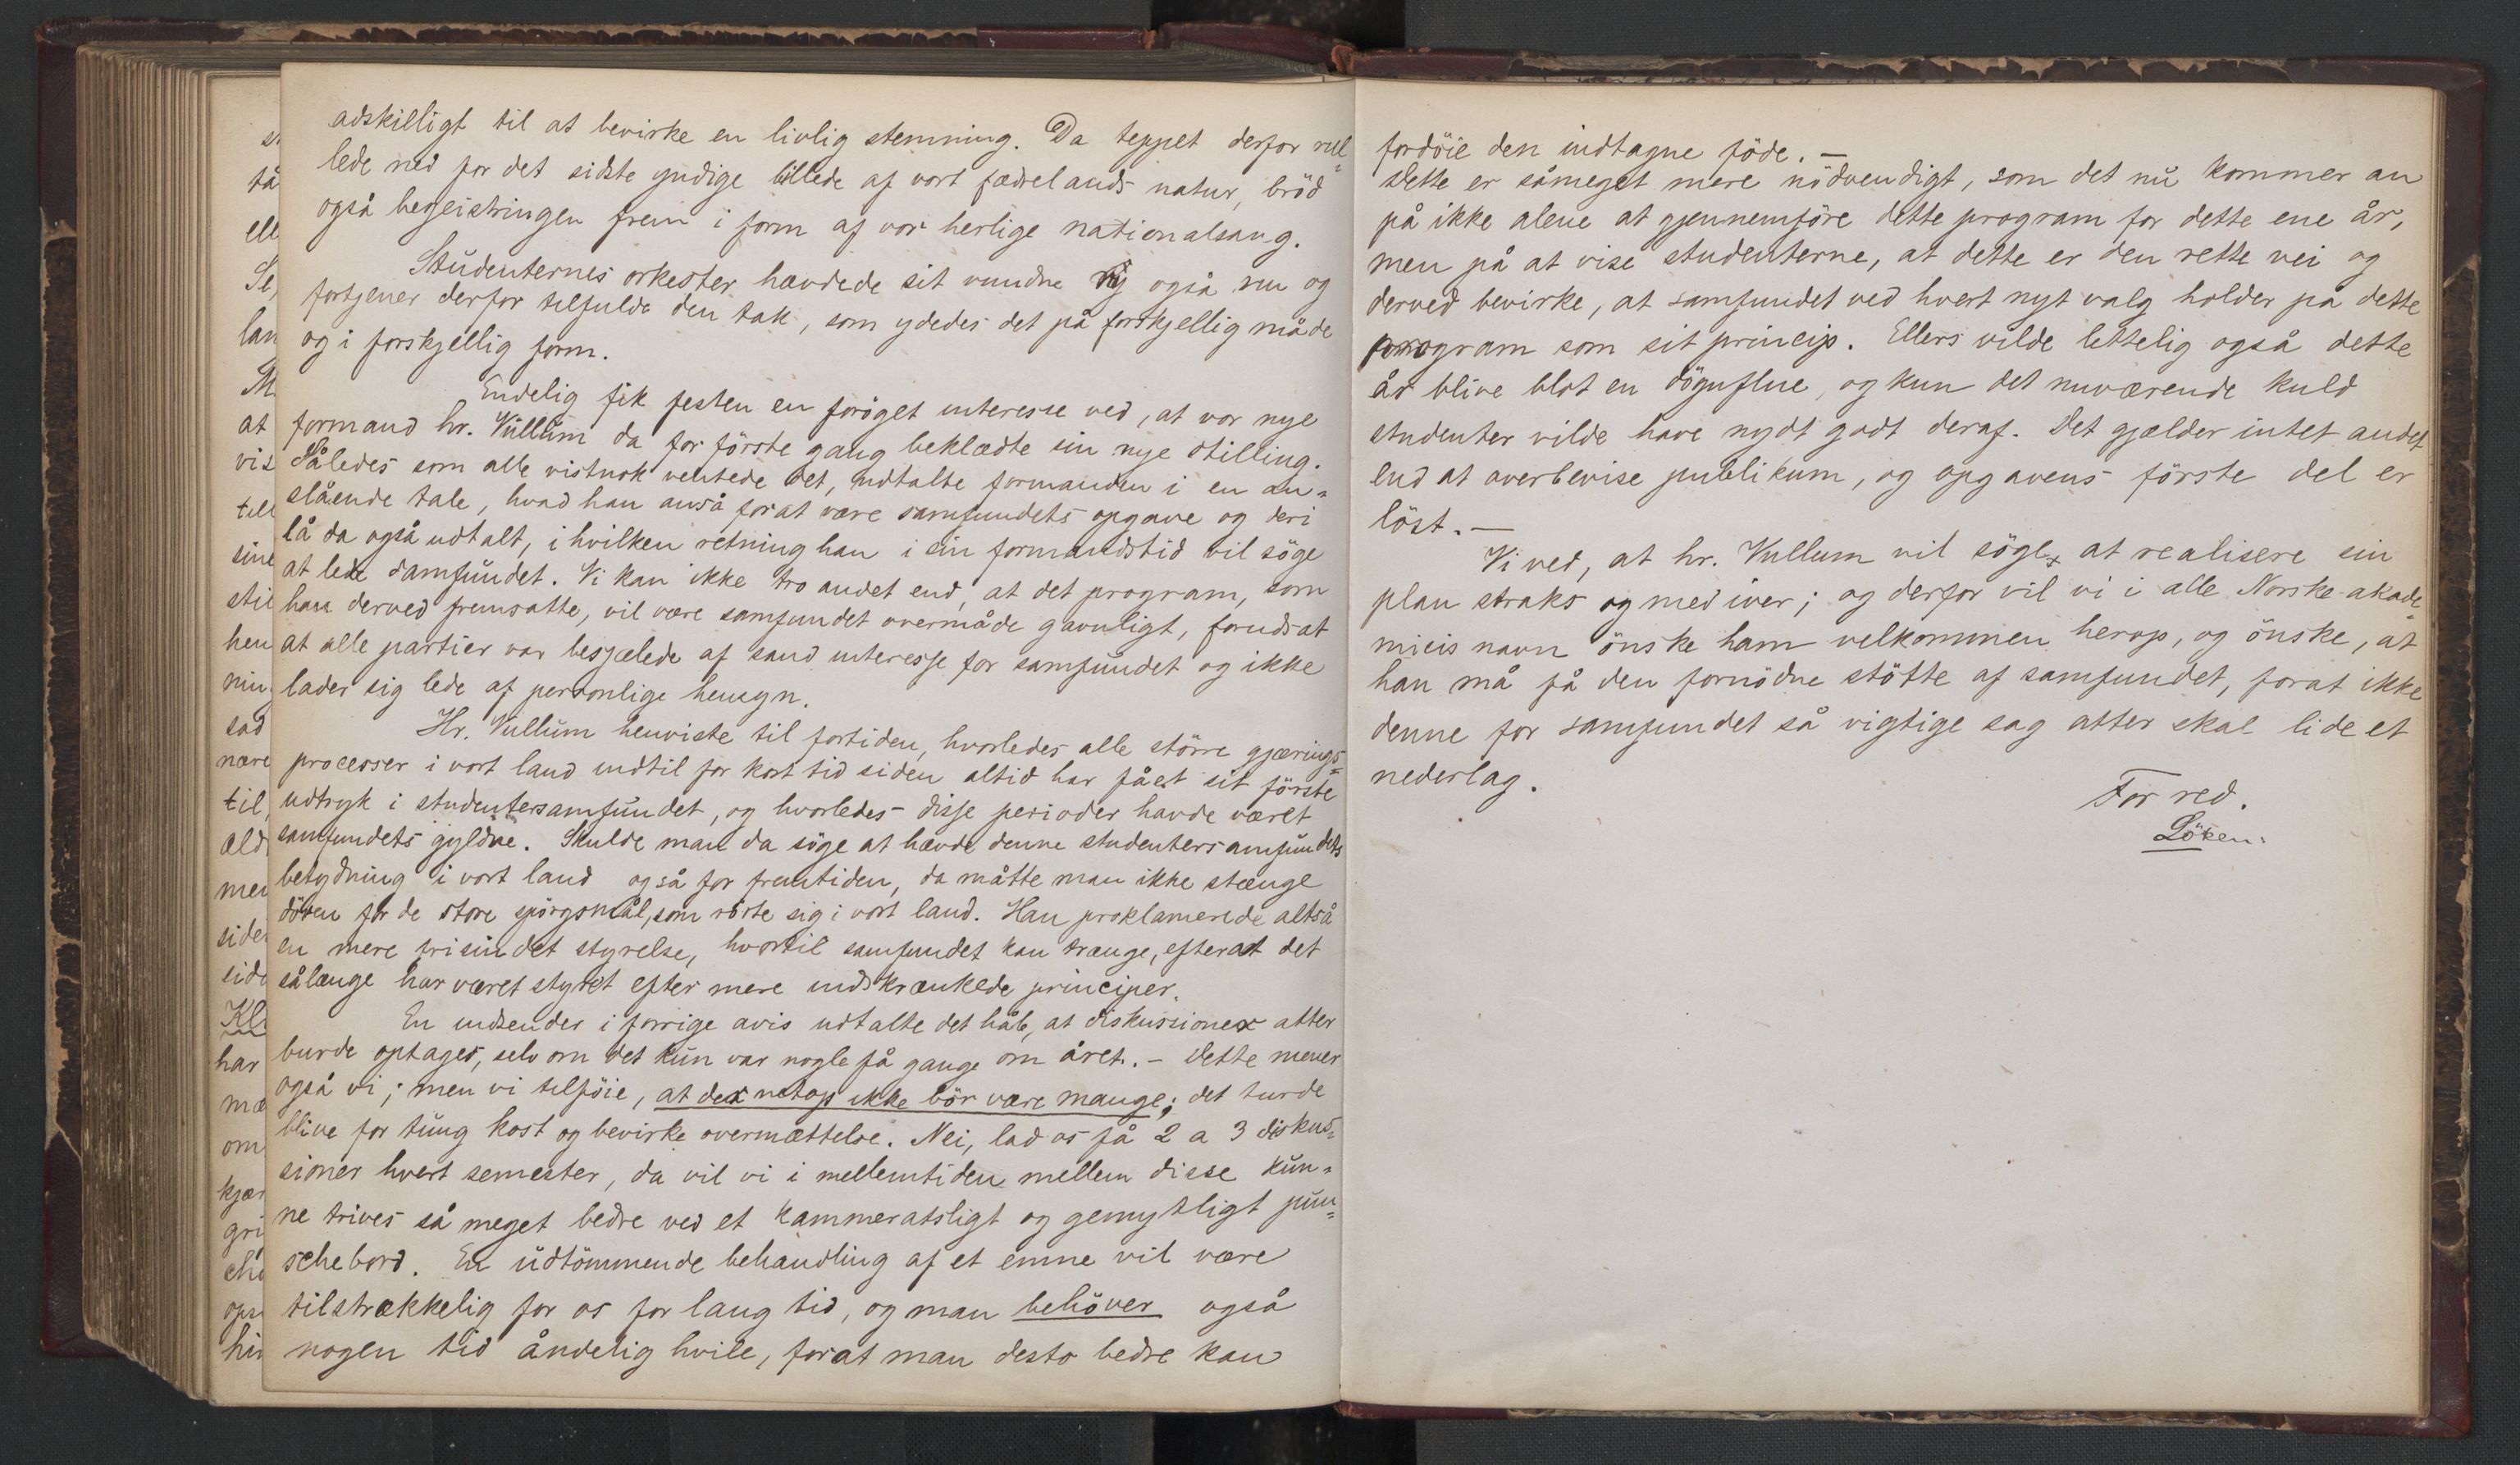 adskilligt til at bevirke en livlig stemning. Da teppet derfor rul=
lede ned for det sidste yndige billede af vort fædrelands natur, bröd
også begeistringen frem i form af vor herlige nationalsang.
Studenternes orkester hævdede sit vundne ry også nu og
fortjener derfor tilfulde den tak, som ydedes det på forskjellig måde
og i forskjellig form.
Endelig fik festen en foröget interesse ved, at vor nye
formand hr. Vullum da for förste gang beklædte sin nye stilling.
Således som alle vistnok ventede det, udtalte formanden i en an=
slående tale, hvad han anså forat være samfundets opgave og deri
lå da også udtalt, i hvilken retning han i sin formandstid vil söge
at lede samfundet. Vi kan ikke tro andet end, at det program, som
han derved fremsatte, vil være samfundet overmåde gavnligt, forudsat
at alle partier var besjælede af sand interesse for samfundet og ikke
lader sig lede af personlige hensyn.
Hr. Vullum henviste til fortiden, hvorledes alle större gjærings=
processer i vort land indtil for kort tid siden altid har fået sit förste
udtryk i studentersamfundet, og hvorledes disse perioder havde været
samfundets gyldne. Skulde man da söge at hævde denne studentersamfundets
betydning i vort land også for fremtiden, da måtte man ikke stænge
dören for de store spörgsmål, som rörte sig i vort land. Han proklamerede altså
en mere frisindet styrelse, hvortil samfundet kan trænge, efterat det
sålænge har været styret efter mere indskrænkede principer.
En indsender i forrige avis udtalte det håb, at diskussioner atter
burde optages, selv om det kun var nogle få gange om året. – Dette mener
også vi; men vi tilföie, at der netop ikke bör være mange; det turde
blive for tung kost og bevirke overmættelse. Nei, lad os få 2 a 3 diskus=
sioner hvert semester, da vil vi i mellemtiden mellem disse kun=
ne trives så meget bedre ved et kammeratsligt og gemytligt pun=
schebord. En udtömmende behandling af et emne vil være
tilstrækkelig for os for lang tid, og man behöver også
nogen tid åndelig hvile, forat man desto bedre kan
fordöie den indtagne föde. –
Dette er såmeget mere nödvendigt, som det nu kommer an
på ikke alene at gjennemföre dette program for dette ene år,
men på at vise studenterne, at dette er den rette vei og
derved bevirke, at samfundet ved hvert nyt valg holder på dette
program som sit princip. Ellers vilde lettelig også dette
år blive blot en dögnflue, og kun det nuværende kuld
studenter vilde have nydt godt deraf. Det gjælder intet andet
end at overbevise publikum, og opgavens förste del er
löst. –
Vi ved, at hr. Vullum vil söge at realisere sin
plan straks og med iver; og derfor vil vi i alle Norske akade=
micis navn önske ham velkommen herop, og önske, at
han må få den fornödne stötte af samfundet, forat ikke
denne for samfundet så vigtige sag atter skal lide et
nederlag.
For red.
Löken.